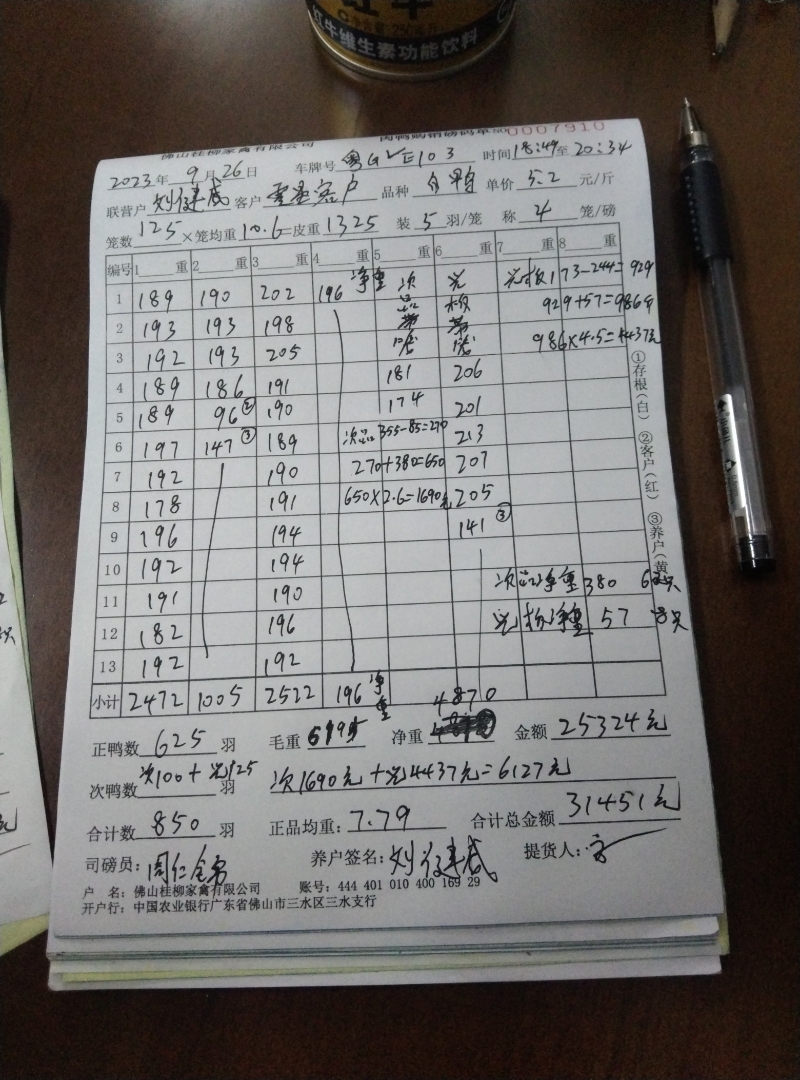 红牛维生素功能饮料
佛山桂柳家禽有限公司 肉鸭购销磅码单 NO 0007910
2023年 9月26日 车牌号 粤GVE103 时间18:49至20:34
联营户 刘 建成 客户 客户 品种 白鸭 单价 5.2 元/斤
笼数 125 ×笼均重 10.6=皮重 1325 装 5 羽/笼 称 4 笼/磅
编号 1 重 2 重 3 重 4 重 5 重 6 重 7 重 8 重
1 189 190 202 196 净重 次品 光 光板 1173-244=929
2 193 193 198 带 板 带 929+57=986
3 192 193 205 986×4.5=4437元
4 189 186 191 181 206
5 189 96② 190 174 201
6 197 147③ 189 次品 355-85=270 213
7 192 190 270+380=650 207
8 178 191 650×2.6=1690元 205
9 196 194 141③
10 192 194 次品净重 380
11 191 190 光板净重 57
12 182 196
13 192 192
小计 2472 1005 2522 196 净重 4870
正鸭数 625 羽 毛重 6195 净重 金额 25324元
次鸭数 次100+光125 羽 次1690元+光4437元=6127元
合计数 850 羽 正品均重: 7.79 合计总金额 31451元
司磅员: 周仁 养户签名: 刘 建成 提货人:
户 名: 佛山桂柳家禽有限公司 账号: 444 401 010 400 169 29
开户行: 中国农业银行广东省佛山市三水区三水支行
①存根(白) ②客户(红) ③养户(黄